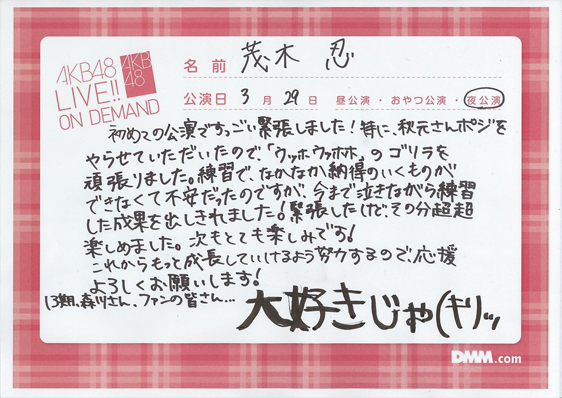 AKB48
LIVE!!
ON DEMAND
AKB
48
名前 茂木 忍
公演日 3月29日 昼公演・おやつ公演・夜公演
初めての公演ですっごい緊張しました!特に、秋元さんポジを
やらせていただいたので、「ウッホウッホホ」のゴリラを
頑張りました。練習で、なかなか納得のいくものが
できなくて不安だったのですが、今まで泣きながら練習
した成果を出しきれました!緊張したけど、その分超超
楽しめました。次もとても楽しみです!
これからもっと成長していけるよう努力するので、応援
よろしくお願いします!
13期、森川さん、ファンの皆さん...
大好きじゃ(キリッ
DMM.com